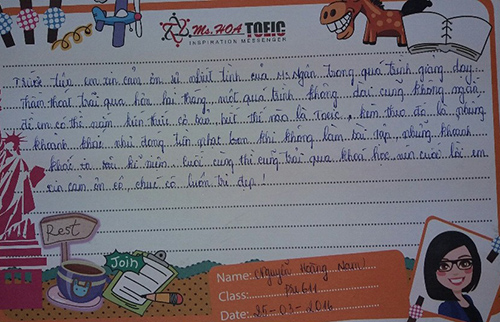 Ms. HOA TOEIC
INSPIRATION MESSENGER
Trước tiên em xin cảm ơn sự nhiệt tình của Ms Ngân trong quá trình giảng dạy.
Thấm thoát trải qua hơn hai tháng, một quá trình không dài cũng không ngắn,
để em có thể nắm kiến thức cơ bản biết thế nào là Toeic, kèm theo đó là những
khoảnh khắc như đóng tiền phạt khi không làm bài tập, những khoảnh
khắc đó rất kỉ niệm. cuối cùng thì cũng trải qua khoá học, nên cuối lời em
xin cảm ơn cô, chúc cô luôn trẻ đẹp!
Rest
Join
Name: Nguyễn Hoàng Nam
Class: PU611
Date: 25-03-2016